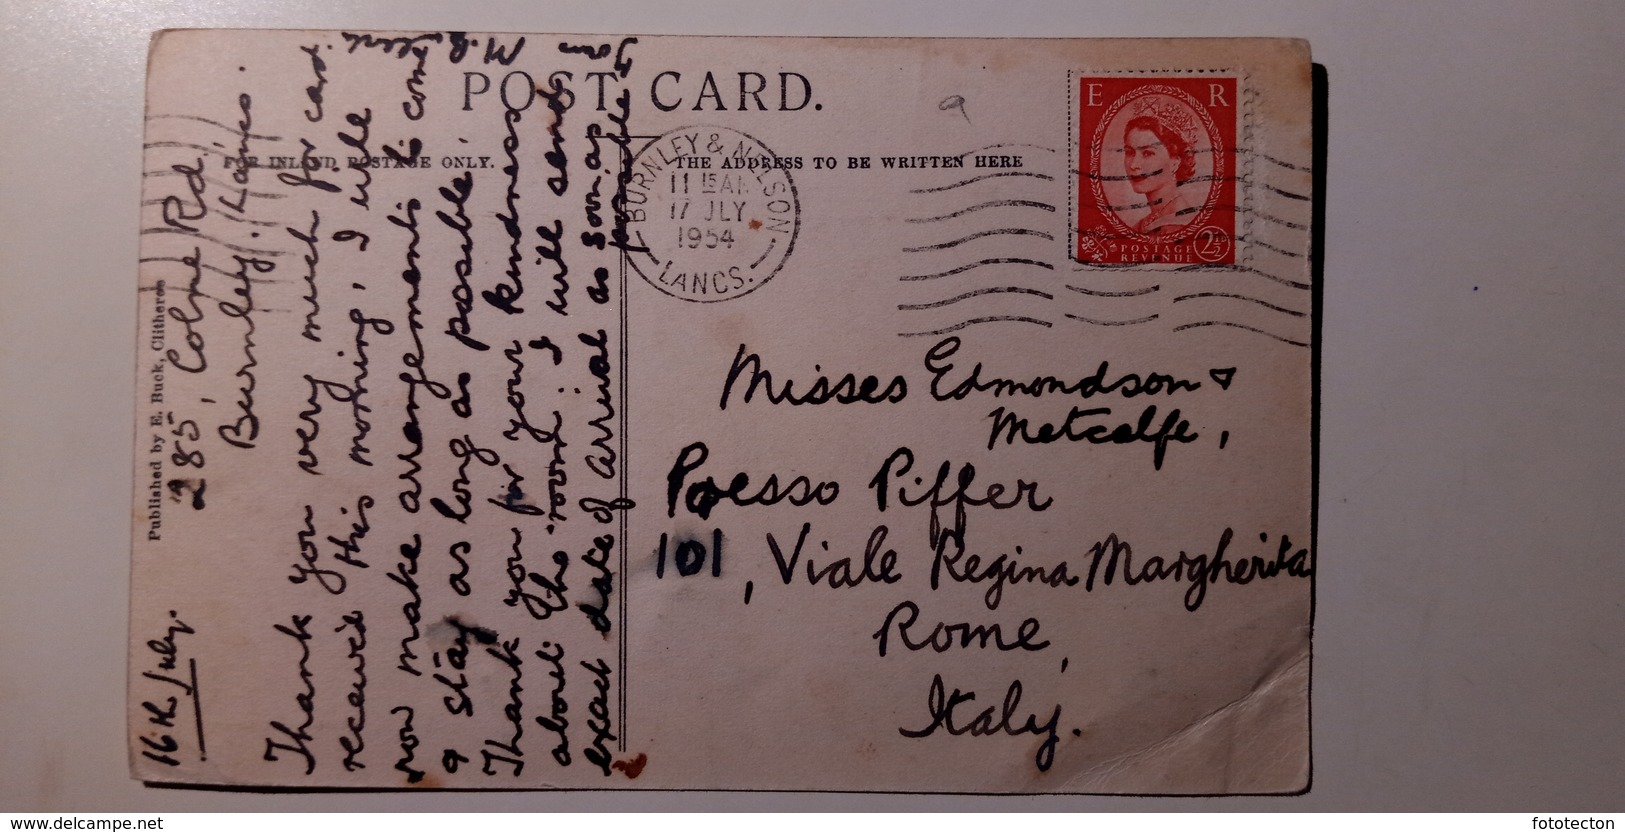 POST CARD.
FOR INLAND POSTAGE ONLY.
THE ADDRESS TO BE WRITTEN HERE
Published by E. Buck, Clitheroe
16th July.
285, Colne Rd,
Burnley. Lancs.
Thank you very much for card
received this morning, I will
now make arrangements to come
& stay as long as possible.
Thank you for your kindness
about the room: I will send
exact date of arrival as soon as
possible
BURNLEY & NELSON
11 15 AM
17 JLY
1954
LANCS.
E R
POSTAGE
REVENUE
2½D
Misses Edmondson &
Metcalfe,
Presso Piffer
101, Viale Regina Margherita
Rome,
Italy.
delcampe.net
fototecton